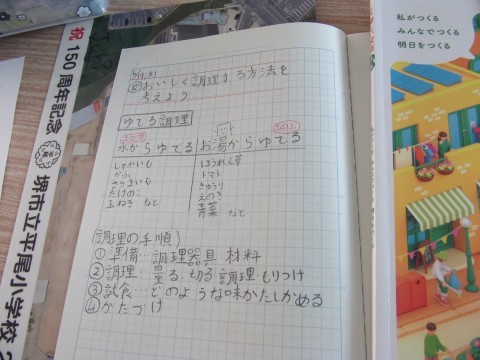 祝 150周年記念
堺市立平尾小学校
めおいしく調理する方法を
考えよう
ゆでる調理
水からゆでる
じゃがいも
かぶ
さつまいも
たけのこ
玉ねぎ など
お湯からゆでる
ほうれん草
トマト
きゅうり
えのき
青菜 など
(調理の手順)
①準備…調理器具 材料
②調理…量る、切る、調理、もりつけ
③試食…どのような味かたしかめる
④かたづけ
私がつくる
みんなでつくる
明日をつくる